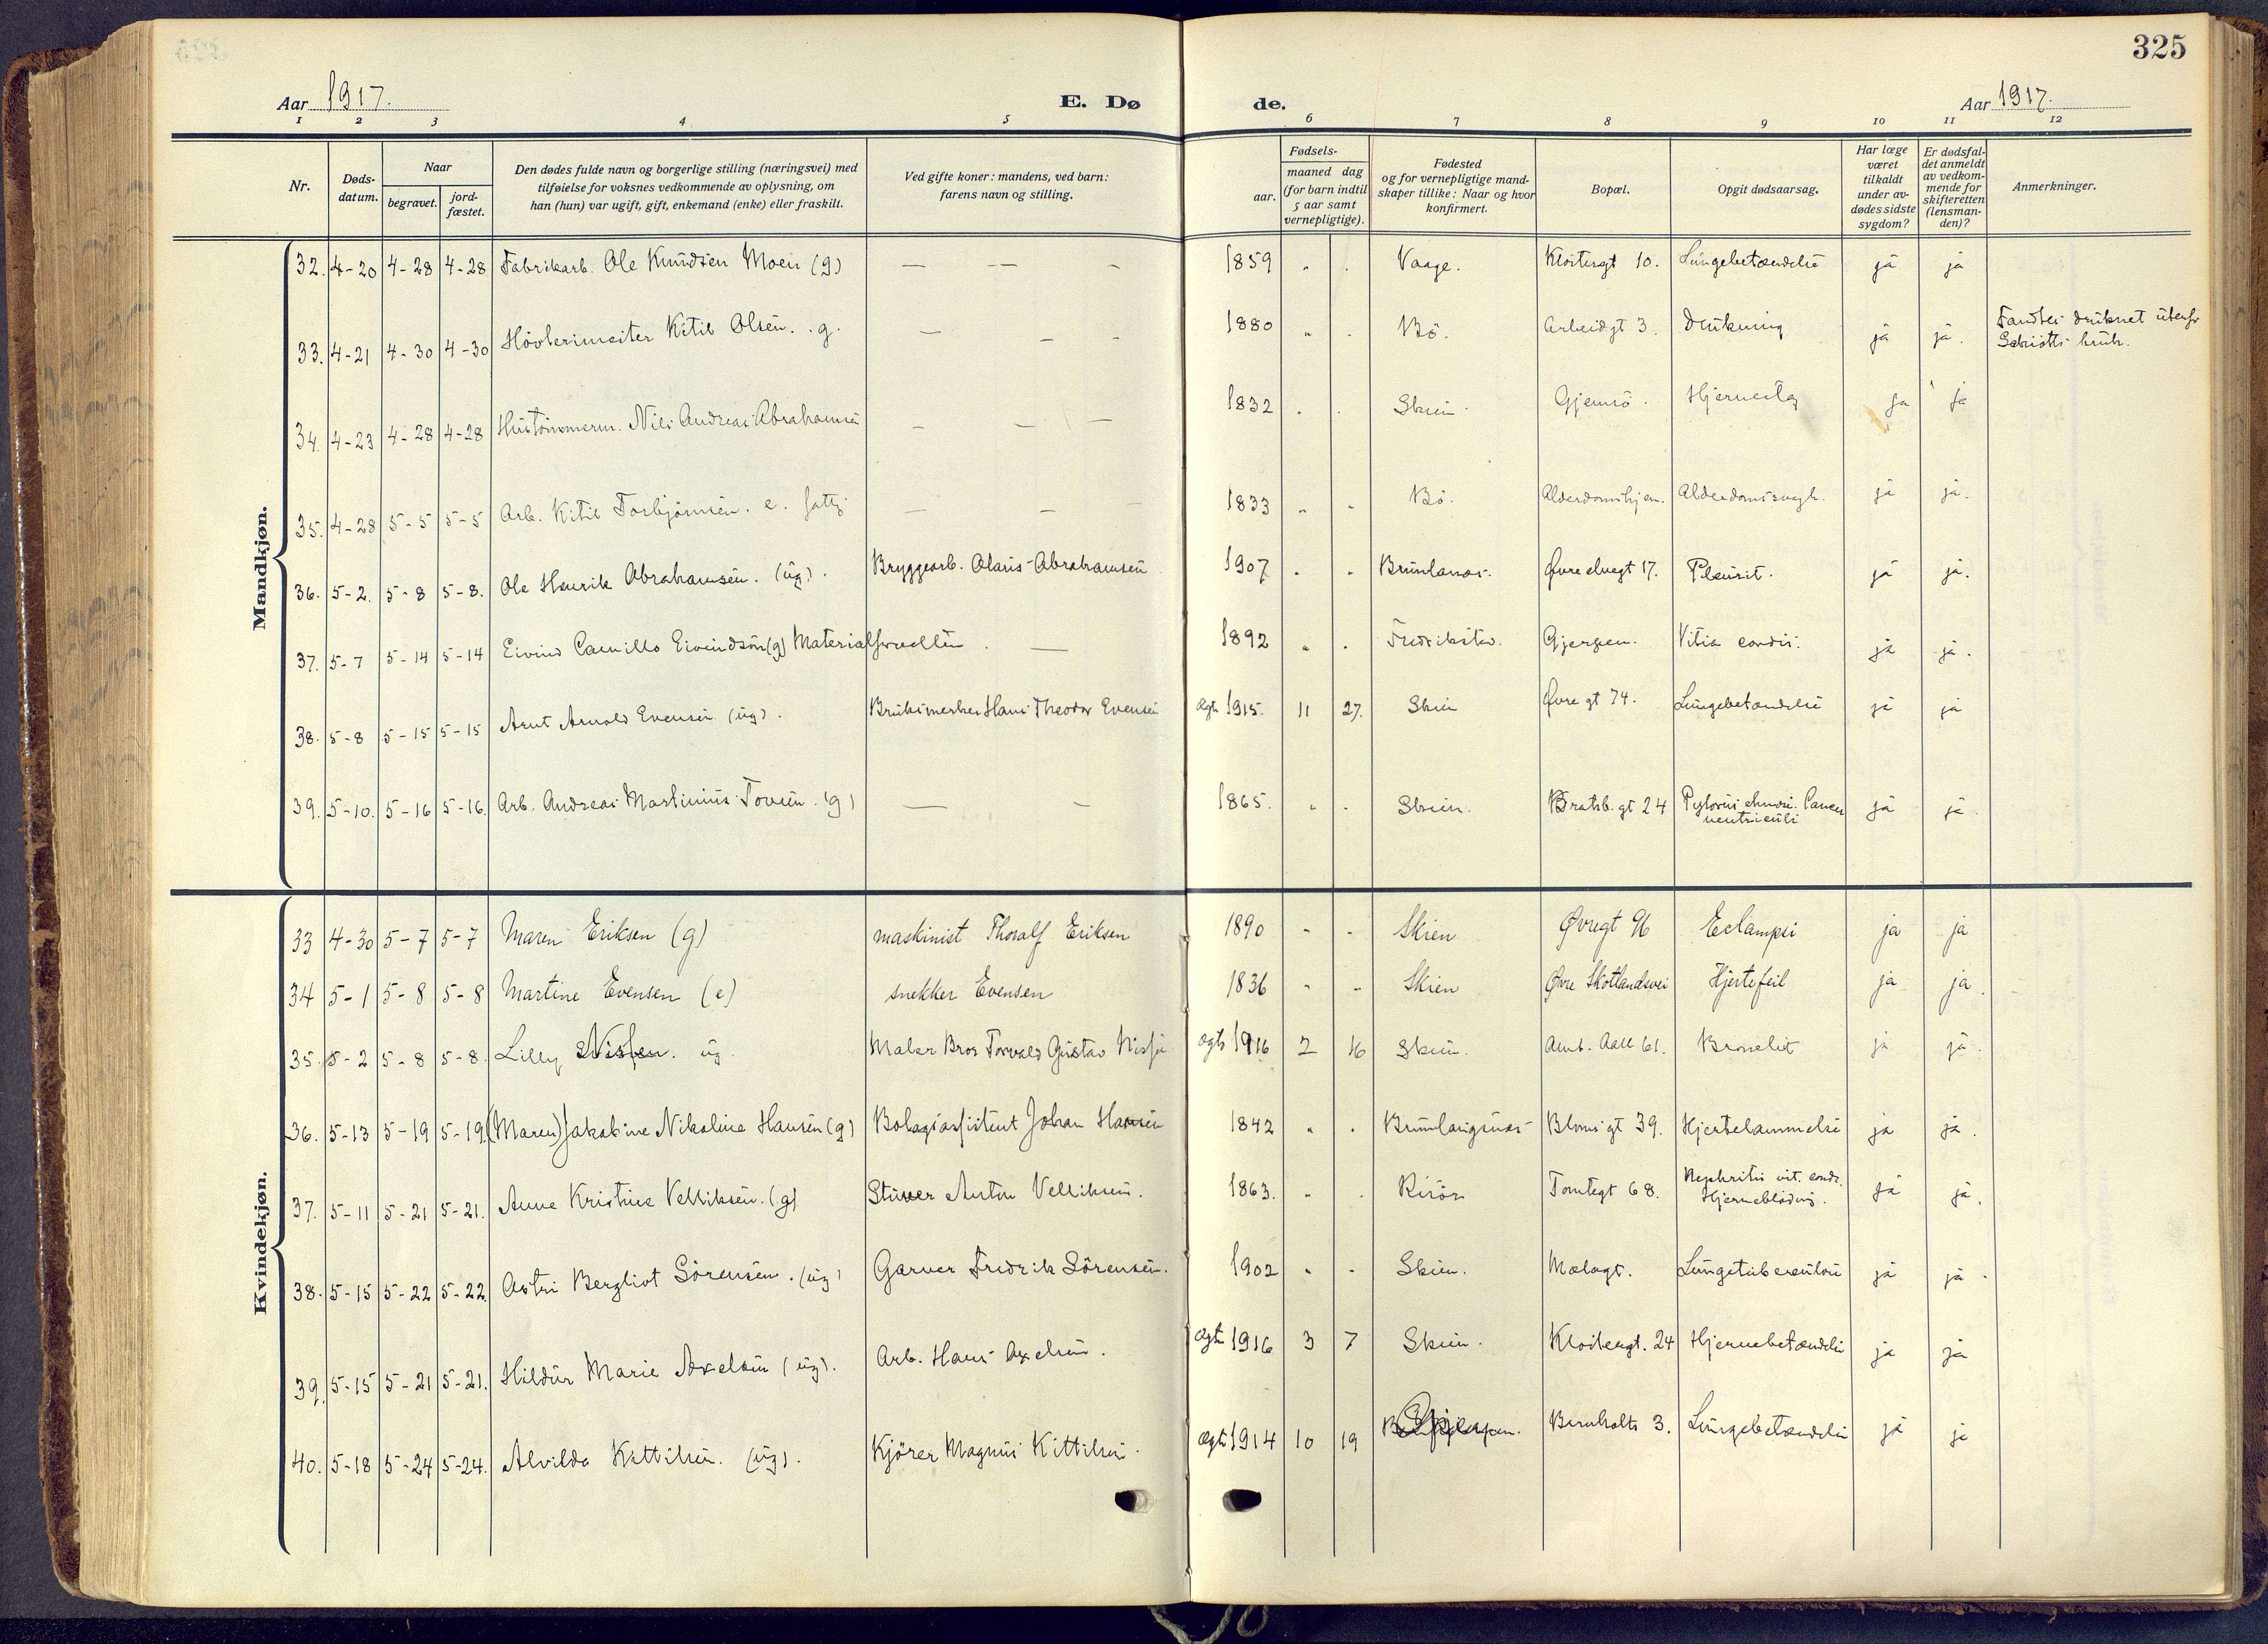 325
Aar 1917.
E. Dø
de.
Aar 1917.
1 2 3 4 5 6 7 8 9 10 11 12
Nr.
Døds-
datum.
Naar
begravet.
jord-
fæstet.
Den dødes fulde navn og borgerlige stilling (næringsvei) med
tilføielse for voksnes vedkommende av oplysning, om
han (hun) var ugift, gift, enkemand (enke) eller fraskilt.
Ved gifte koner: mandens, ved barn:
farens navn og stilling.
Fødsels-
aar.
maaned dag
(for barn indtil
5 aar samt
vernepligtige).
Fødested
og for vernepligtige mand-
skaper tillike: Naar og hvor
konfirmert.
Bopæl.
Opgit dødsaarsag.
Har læge
været
tilkaldt
under av-
dødes sidste
sygdom?
Er dødsfal-
det anmeldt
av vedkom-
mende for
skifteretten
(lensman-
den)?
Anmerkninger.
Mandkjøn.
32. 4-20 4-28 4-28 Fabrikarb. Ole Knudsen Moen (g) — — - 1859 " . Vaage. Klostergt 10. Lungebetændelse ja ja
33. 4-21 4-30 4-30 Høvlerimester Kitil Olsen. g. — - - 1880 " . Bö. Arbeidgt 3. Drukning ja ja. Fandtes druknet utenfr
bruk.
34. 4-23 4-28 4-28 Hustömmerm. Nils Andreas Abrahamsen - - — 1832 . . Skien. Gjemsö. Hjerneslag ja ja
35. 4-28 5-5 5-5 Arb. Kitil Torbjörnsen. e. fattig — — — 1833 " " Bö. Alderdomshjem. Alderdomssvagh. ja ja.
36. 5-2. 5-8 5-8. Ole Henrik Abrahamsen. (ug). Bryggearb. Olaus Abrahamsen 1907 " " Brunlanæs. Øvre elvegt 17. Pleurit. ja ja.
37. 5-7 5-14 5-14 Eivind Camillo Eivindsön (g) Materialforvalter. — 1892 " . Fredrikstad. Gjerpen. Vitia cordis. ja ja.
38. 5-8 5-15 5-15 Arnt Arnold Evensen (ug). Bruksmester Hans Theodor Evensen ægte 1915. 11 27. Skien Øvre gt 74. Lungebetændelse ja ja
39. 5-10. 5-16 5-16. Arb. Andreas Martinius Tovsen. (g) — - 1865. " . Skien. Bratsb. gt 24 Cancer
ventriculi ja ja.
Kvindekjøn.
33 4-30 5-7 5-7 Maren Eriksen (g) maskinist Thoralf Eriksen 1890 - - Skien Øvregt 96 Eclampsi ja ja
34 5-1 5-8 5-8 Martine Evensen (e) snekker Evensen 1836 " - Skien Øvre Skotlandsvei Hjertefeil ja ja.
35. 5-2 5-8 5-8. Lilly ug. Maler Bror Torvald Gustav ægte 1916 2 16 Skien. Amt. Aall 61. Bronchit ja ja.
36. 5-13 5-19 5-19. (Maren) Jakobine Nikoline Hansen (g) Johan Hansen 1842 " . Brunlangnæs Bloms gt 39. Hjertelammelse ja ja.
37. 5-11 5-21 5-21. Anne Kristine Velliksen. (g) Stuver Anton Velliksen. 1863. " . Risör Tomtegt 68. Nephritis vit. cordis.
Hjerneblödning. ja ja.
38. 5-15 5-22 5-22. Astri Bergliot Sörensen. (ug) Garver Fredrik Sörensen. 1902 " - Skien. Mælagt. Lungetuberculose ja ja.
39. 5-15 5-21 5-21. Hildur Marie Axelsen (ug). Arb. Hans Axelsen. ægte 1916 3 7 Skien. Klostergt. 24 Hjernebetændelse ja ja
40. 5-18 5-24 5-24. Alvilda Kittilsen. (ug). Kjörer Magnus Kittilsen. ægte 1914 10 19 Bernholts 3. Lungebetændelse ja ja